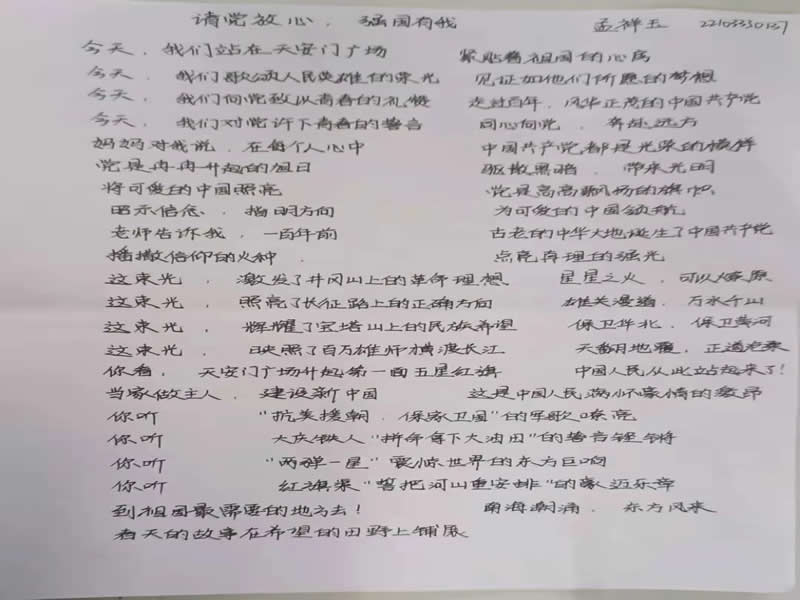 请党放心，强国有我 孟祥玉
今天，我们站在天安门广场 紧贴着祖国的心房
今天，我们歌颂人民英雄的荣光 见证如他们所愿的梦想
今天，我们向党致以青春的礼赞 走过百年，风华正茂的中国共产党
今天，我们对党许下青春的誓言 同心向党，奔赴远方
妈妈对我说，在每个人心中 中国共产党都是光荣的模样
党是冉冉升起的旭日 驱散黑暗，带来光明
将可爱的中国照亮 党是高高飘扬的旗帜
昭示信念，指明方向 为可爱的中国领航
老师告诉我，一百年前 古老的中华大地诞生了中国共产党
播撒信仰的火种， 点亮真理的强光
这束光，激发了井冈山上的革命理想 星星之火，可以燎原
这束光，照亮了长征路上的正确方向 雄关漫道，万水千山
这束光，辉耀了宝塔山上的民族希望 保卫华北，保卫黄河
这束光，映照了百万雄师横渡长江 天翻地覆，正道沧桑
你看，天安门广场升起第一面五星红旗 中国人民从此站起来了！
当家做主人，建设新中国 这是中国人民满怀豪情的激昂
你听 “抗美援朝，保家卫国”的军歌嘹亮
你听 大庆铁人“拼命拿下大油田”的誓言铿锵
你听 “两弹一星”震惊世界的东方巨响
你听 红旗渠“誓把河山重安排”的豪迈乐章
到祖国最需要的地方去！ 南海潮涌，东方风来
春天的故事在希望的田野上铺展